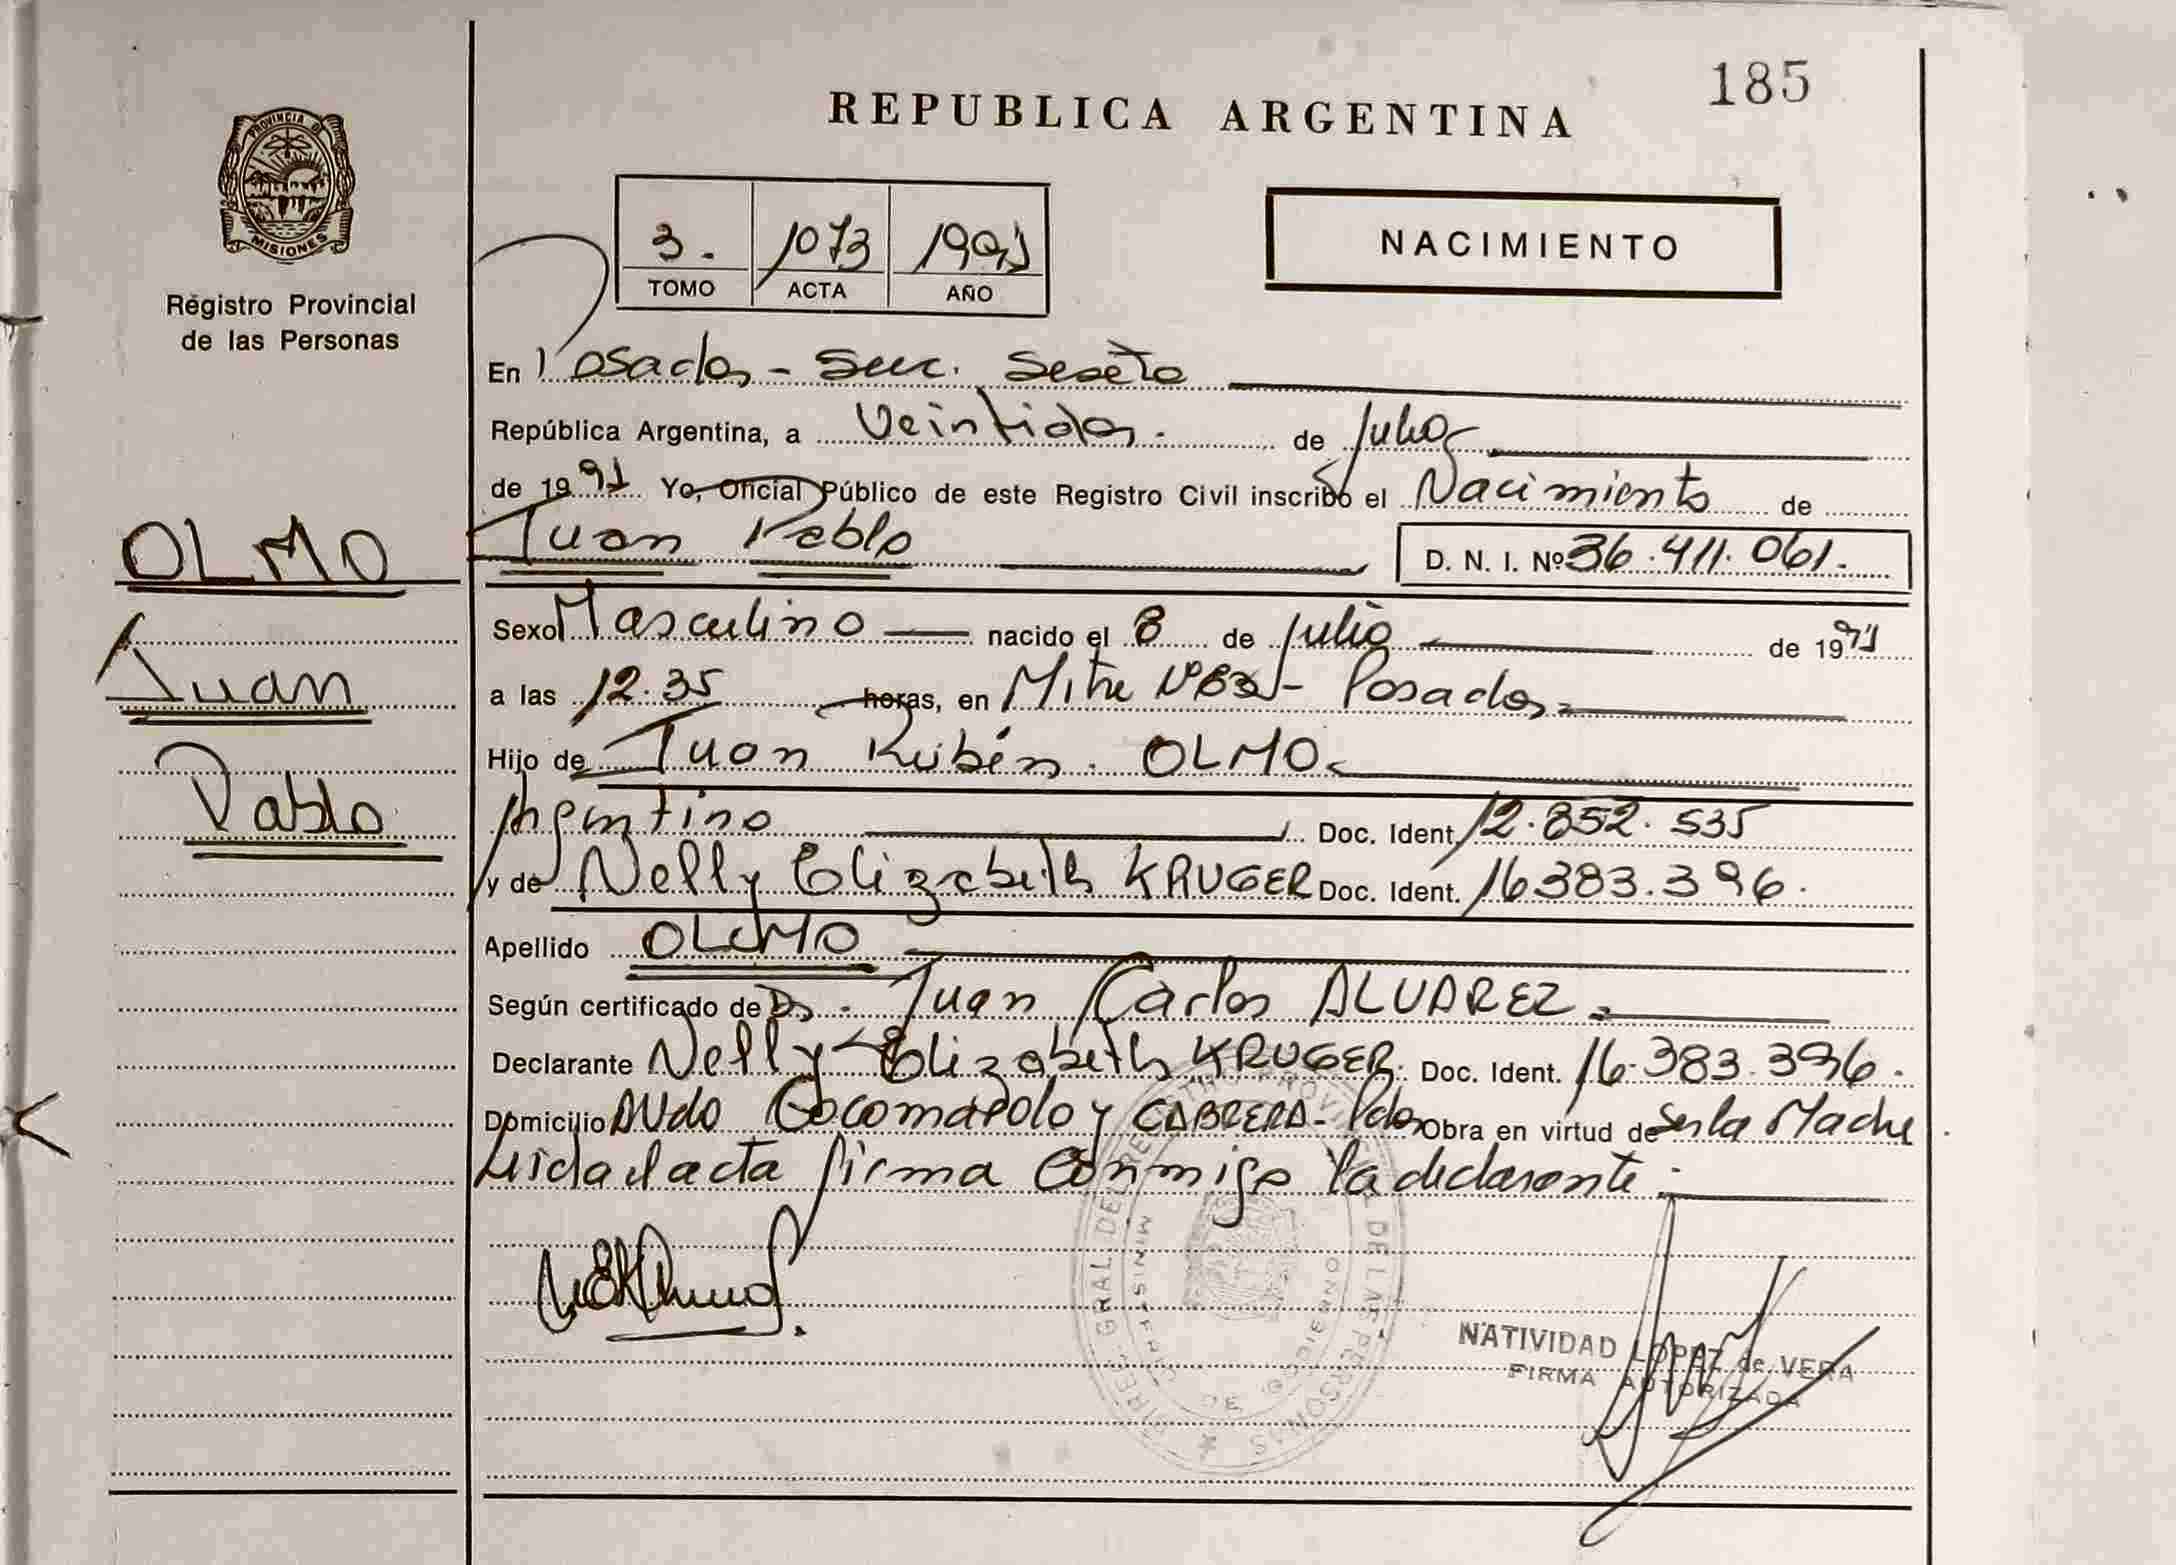 185
REPUBLICA ARGENTINA
PROVINCIA DE
MISIONES
Registro Provincial
de las Personas
3. 1073 1991
TOMO ACTA AÑO
NACIMIENTO
En Posadas - Secc. Sexta
República Argentina, a Veintidos. de Julio
de 1991 Yo, Oficial Público de este Registro Civil inscribo el Nacimiento de
OLMO
Juan Pablo D. N. I. Nº 36.411.061.
Sexo Masculino nacido el 8 de Julio de 1991
Juan
a las 12.35 horas, en Mitre Nº - Posadas
Hijo de Juan Rubén. OLMO
Pablo
Argentino Doc. Ident. 12.852.535
y de Nelly Elizabeth KRUGER Doc. Ident. 16383.396.
Apellido OLMO
Según certificado de Dr. Juan Carlos ALVAREZ
Declarante Nelly Elizabeth KRUGER. Doc. Ident. 16.383.396.
Domicilio y CABRERA - Pdas Obra en virtud de Ser la Madre
Leida el acta firma conmigo la declarante
DIREC. GRAL. DEL REGISTRO PROVINCIAL DE LAS PERSONAS
NATIVIDAD LOPEZ de VERA
FIRMA AUTORIZADA